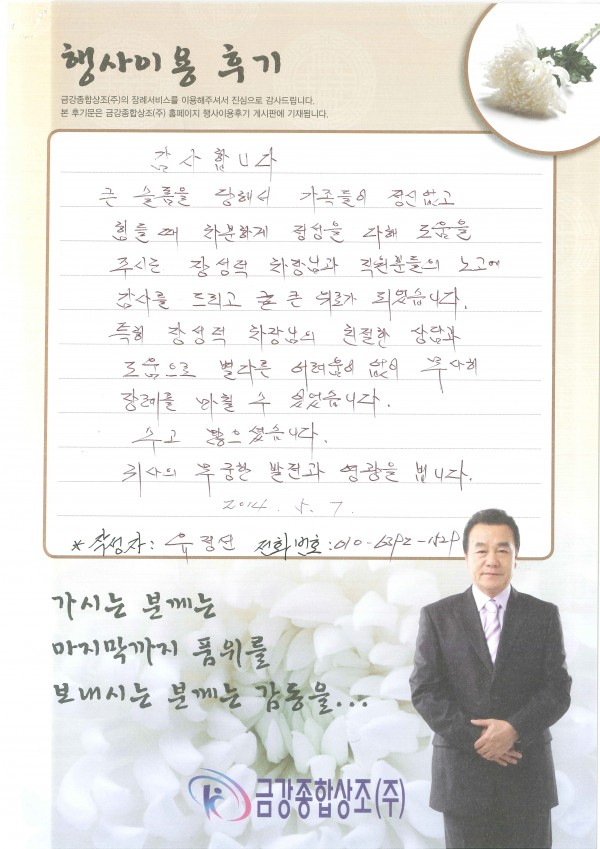 행사이용 후기
금강종합상조(주)의 장례서비스를 이용해주셔서 진심으로 감사드립니다.
본 후기문은 금강종합상조(주) 홈페이지 행사이용후기 게시판에 기재됩니다.
감사합니다
큰 슬픔을 당해서 가족들이 정신없고
힘들때 차분하게 정성을 다해 도움을
주시는 장성적 차장님과 직원분들의 노고에
감사를 드리고 큰 위로가 되었습니다.
특히 장성적 차장님의 친절한 상담과
도움으로 별다른 어려움이 없이 무사히
장례를 마칠 수 있었습니다.
수고 많으셨습니다.
귀사의 무궁한 발전과 영광을 빕니다.
2014. 5. 7.
* 작성자: 유정선 전화번호: 010-6392-1529
가시는 분께는
마지막까지 품위를
보내시는 분께는 감동을...
금강종합상조(주)